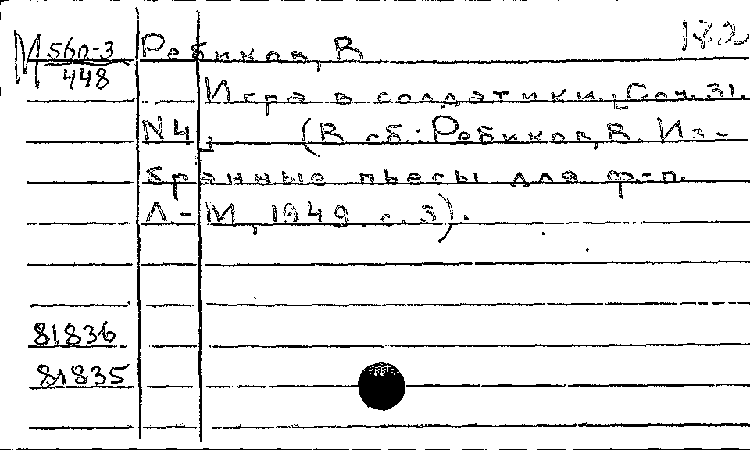 М 560-3/448 Ребиков, В. 182
Игра в солдатики. [Соч. 31.
N4]. (В сб.: Ребиков, В. Из-
бранные пьесы для ф-п.
Л-М, 1949. с. 3).
81836
81835